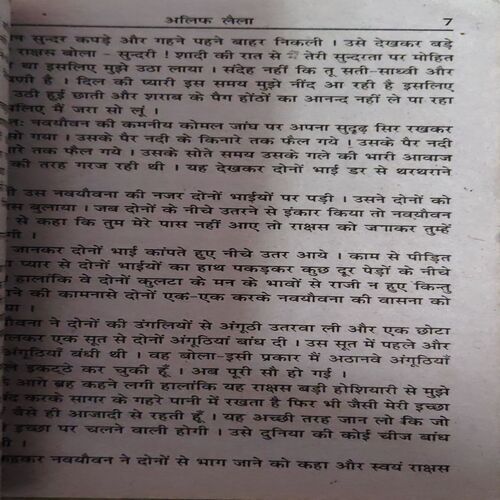 अलिफ लैला 7
सुन्दर कपड़े और गहने पहने बाहर निकली । उसे देखकर बड़े
राक्षस बोला - सुन्दरी ! शादी की रात से तेरी सुन्दरता पर मोहित
था इसलिए मुझे उठा लाया । संदेह नहीं कि तू सती-साध्वी और
है । दिल की प्यारी इस समय मुझे नींद आ रही है इसलिए
उठी हुई छाती और शराब के पैग होंठों का आनन्द नहीं ले पा रहा
मैं जरा सो लूं ।
नवयौवन की कमनीय कोमल जांघ पर अपना सुदृढ़ सिर रखकर
सो गया । उसके पैर नदी के किनारे तक फैल गये । उसके पैर नदी
तक फैल गये । उसके सोते समय उसके गले की भारी आवाज
की तरह गरज रही थी । यह देखकर दोनों भाई डर से थरथराने
उस नवयौवना की नजर दोनों भाईयों पर पड़ी । उसने दोनों को
बुलाया । जब दोनों के नीचे उतरने से इंकार किया तो नवयौवन
से कहा कि तुम मेरे पास नहीं आए तो राक्षस को जगाकर तुम्हें
।
जानकर दोनों भाई कांपते हुए नीचे उतर आये । काम से पीड़ित
प्यार से दोनों भाईयों का हाथ पकड़कर कुछ दूर पेड़ों के नीचे
हालांकि वे दोनों कुलटा के मन के भावों से राजी न हुए किन्तु
की कामनासे दोनों एक-एक करके नवयौवना की वासना को
।
ने दोनों की उंगलियों से अंगूठी उतरवा ली और एक छोटा
एक सूत से दोनों अंगूठियां बांध दी । उस सूत में पहले और
अंगूठियां बंधी थी । वह बोला-इसी प्रकार मैं अठानवे अंगूठियां
इकट्ठे कर चुकी हूँ । अब पूरी सौ हो गई ।
आगे ब्रह कहने लगी हालांकि यह राक्षस बड़ी होशियारी से मुझे
करके सागर के गहरे पानी में रखता है फिर भी जैसी मेरी इच्छा
वैसे ही आजादी से रहती हूँ । यह अच्छी तरह जान लो कि जो
इच्छा पर चलने वाली होगी । उसे दुनिया की कोई चीज बांध
।
नवयौवन ने दोनों से भाग जाने को कहा और स्वयं राक्षस